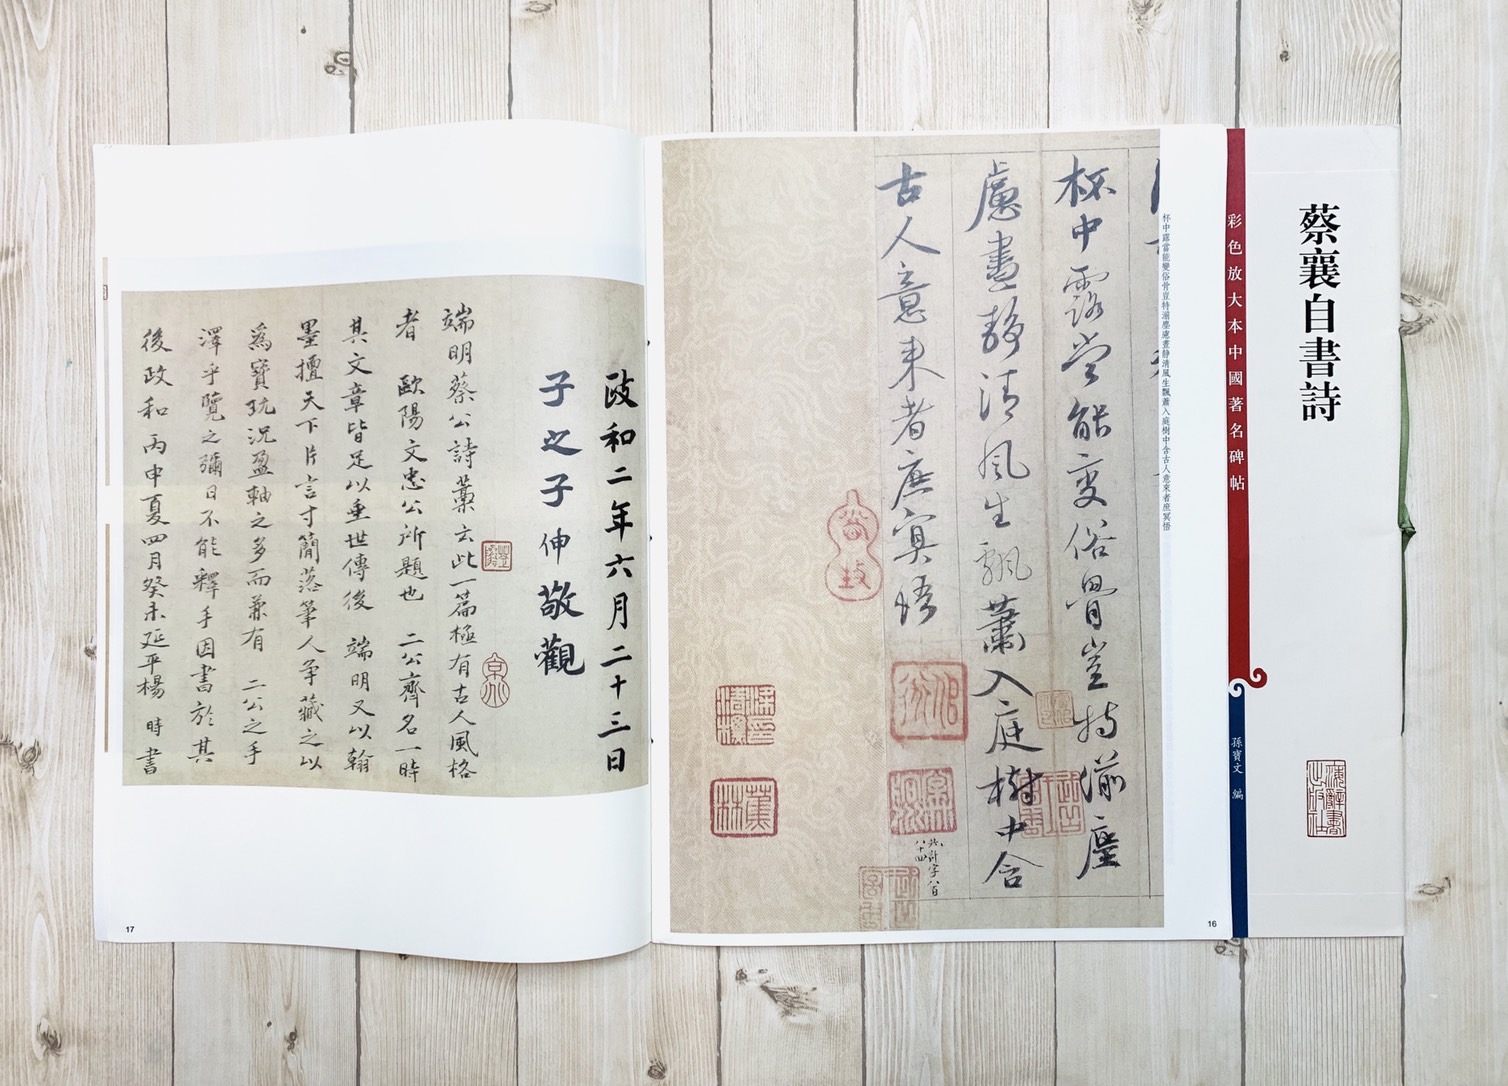 蔡襄自書詩
彩色放大本中國著名碑帖
孫寶文 編
杯中露當能變俗骨豈特湔塵慮晝靜清風生飄蕭入庭樹中含古人意來者庶冥悟
杯中露當能變俗骨豈特湔塵
慮晝靜清風生飄蕭入庭樹中含
古人意來者庶冥悟
共計字八百
八十四
蕉林
16
政和二年六月二十三日
子之子伸敬觀
端明蔡公詩藁云此一篇極有古人風格
者 歐陽文忠公所題也 二公齊名一時
其文章皆足以垂世傳後 端明又以翰
墨擅天下片言寸簡落筆人爭藏之以
為寶玩況盈軸之多而兼有 二公之手
澤乎覽之彌日不能釋手因書於其
後政和丙申夏四月癸未延平楊 時書
17